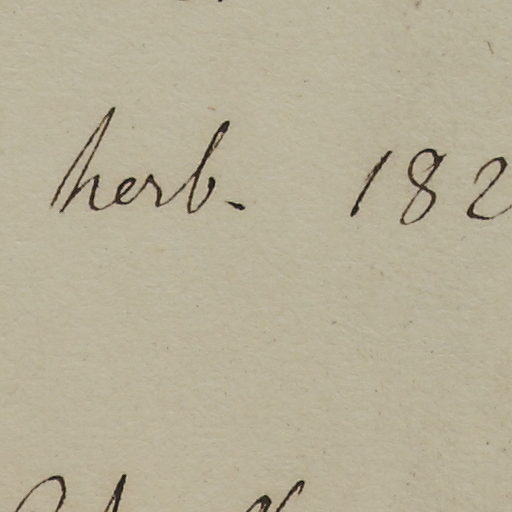 herb. 182